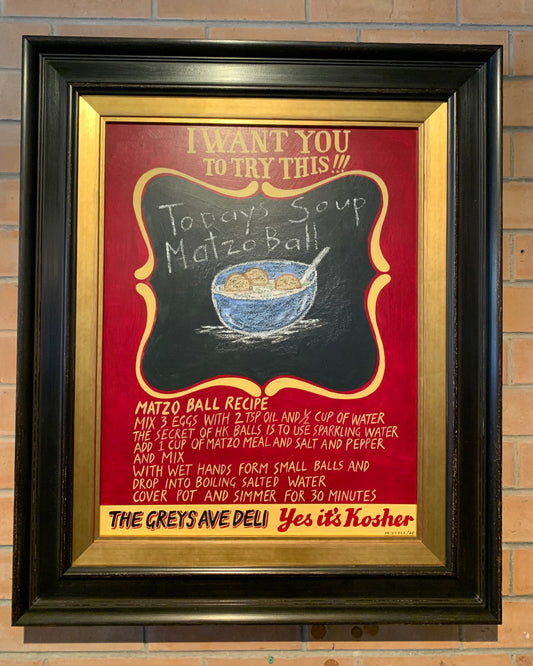 I WANT YOU
TO TRY THIS!!!
Todays Soup
Matzo Ball
MATZO BALL RECIPE
MIX 3 EGGS WITH 2 TSP OIL AND ½ CUP OF WATER
THE SECRET OF HK BALLS IS TO USE SPARKLING WATER
ADD 1 CUP OF MATZO MEAL AND SALT AND PEPPER
AND MIX
WITH WET HANDS FORM SMALL BALLS AND
DROP INTO BOILING SALTED WATER
COVER POT AND SIMMER FOR 30 MINUTES
THE GREYS AVE DELI Yes it's Kosher